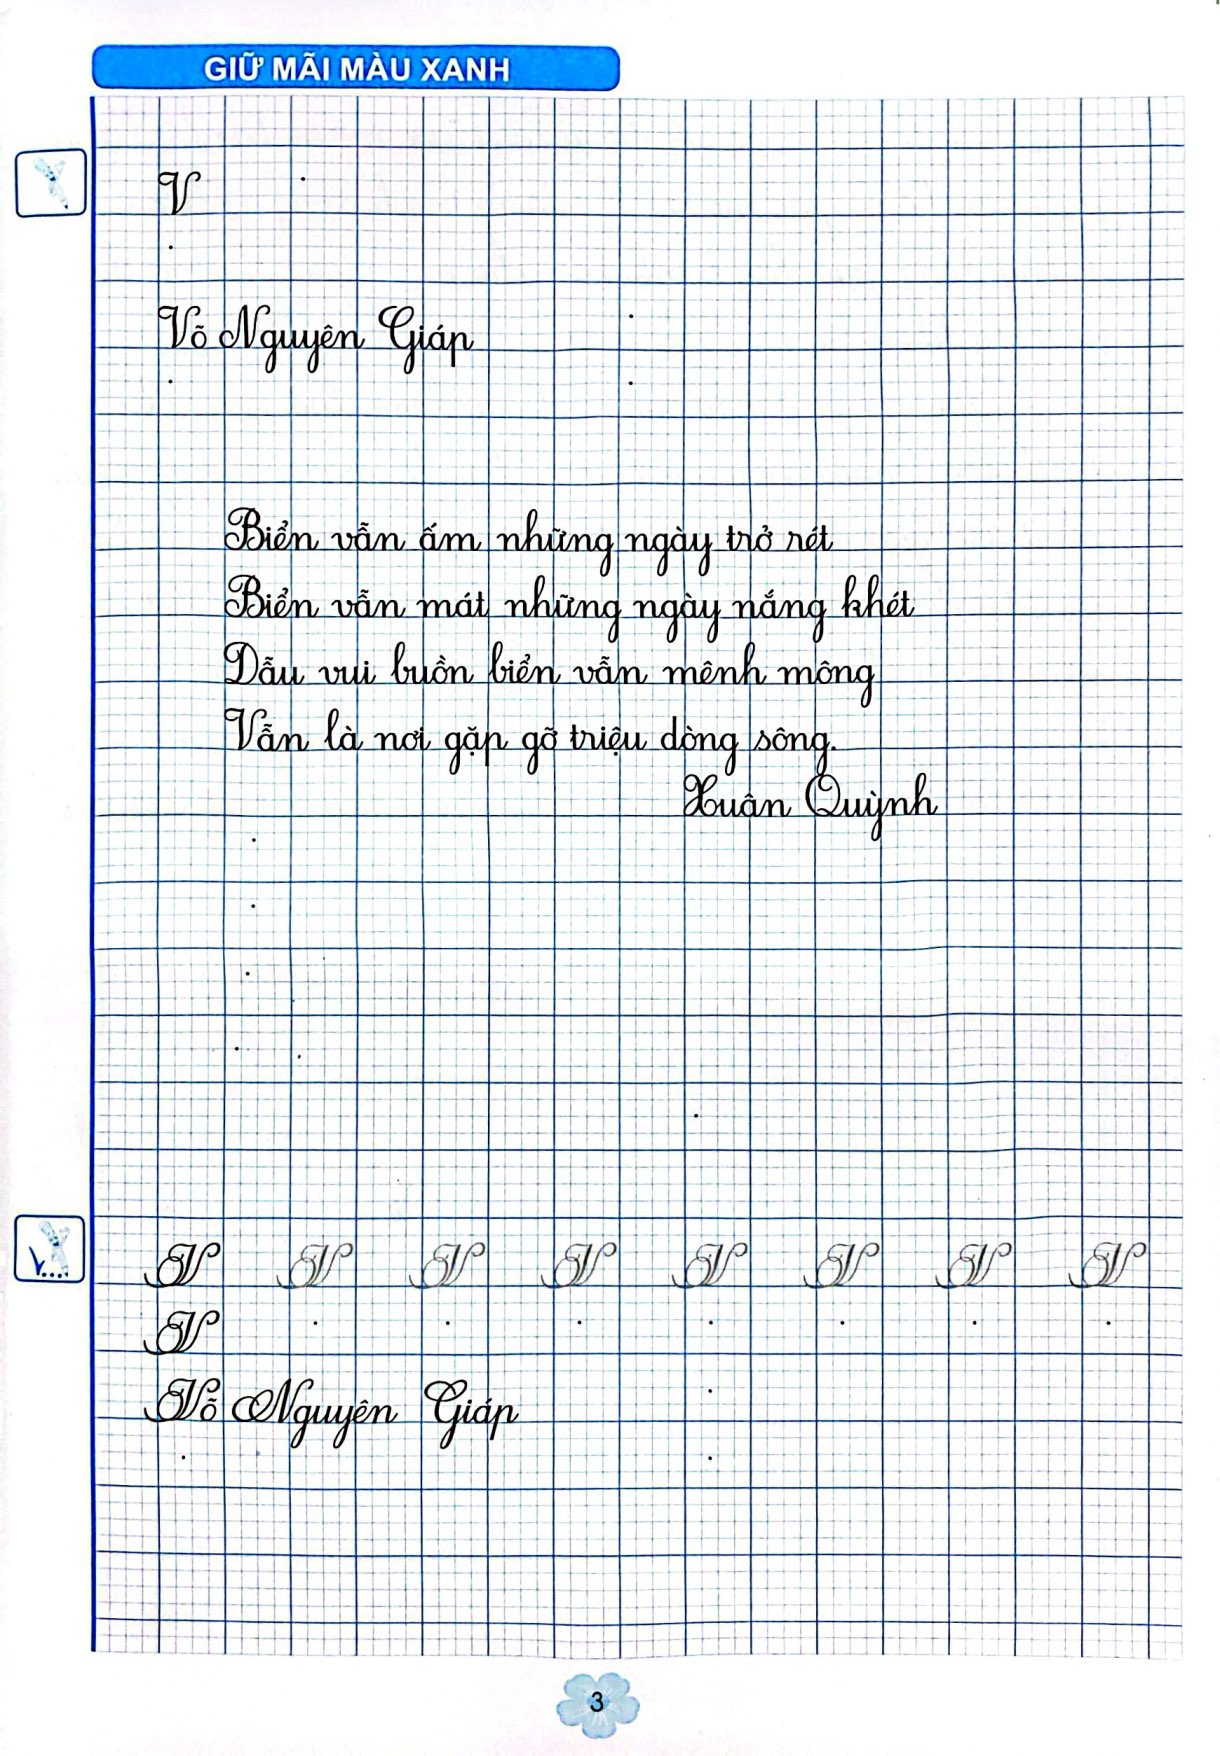 GIỮ MÃI MÀU XANH
V
Võ Nguyên Giáp
Biển vẫn ấm những ngày trở rét
Biển vẫn mát những ngày nắng khét
Dẫu vui buồn biển vẫn mênh mông
Vẫn là nơi gặp gỡ triệu dòng sông.
Xuân Quỳnh
V V V V V V V V
V
Võ Nguyên Giáp
3